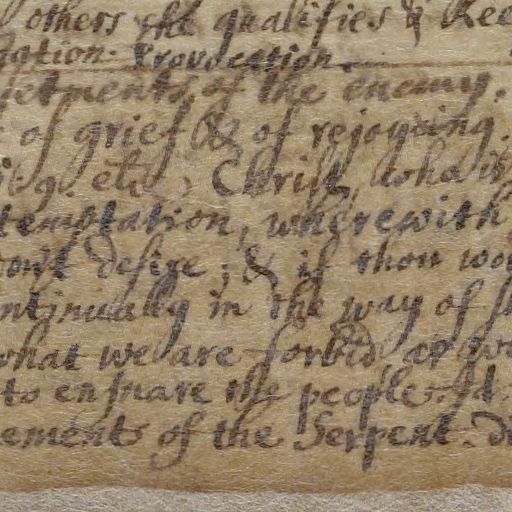 others the qualifies & Kee
tation. Provocation
tements of the enemy.
of grief & of rejoycing.
etc, Christ, who is
temptation, wherewith
desire; & if thou wou
ntinually in the way of
what we are forbid, or
to ensnare the people. Id.
ements of the Serpent.